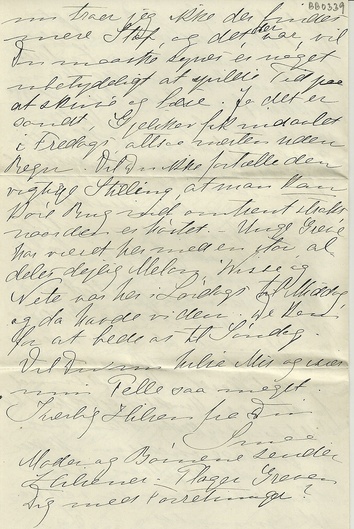 BB0339
nu troer jeg ikke der findes
mere Stof og det der var vil
Du maaske synes er noget
ubetydeligt at spilde Tid paa
at skrive og læse. Ja det er
sandt, Gjelskov fik indavlet
i Fredags, altsaa næsten uden
Regn. Vil Du ikke fortælle den
vigtige Stilling at man kan
Rug med omtrent straks
naar den er høstet. - Unge Greve
har været her med en stor al
deles dejlig Melon. og
Nete var her i Lørdags til Middag
og da havde vi dem. De kom
for at bede os til Søndag.
Vil Du nu Mis og vær
min Pelle saa meget
Kærlig Hilsen fra Din
Moder og Børnene sender
Hilsener. Plager Greven
Dig med Forretninger?